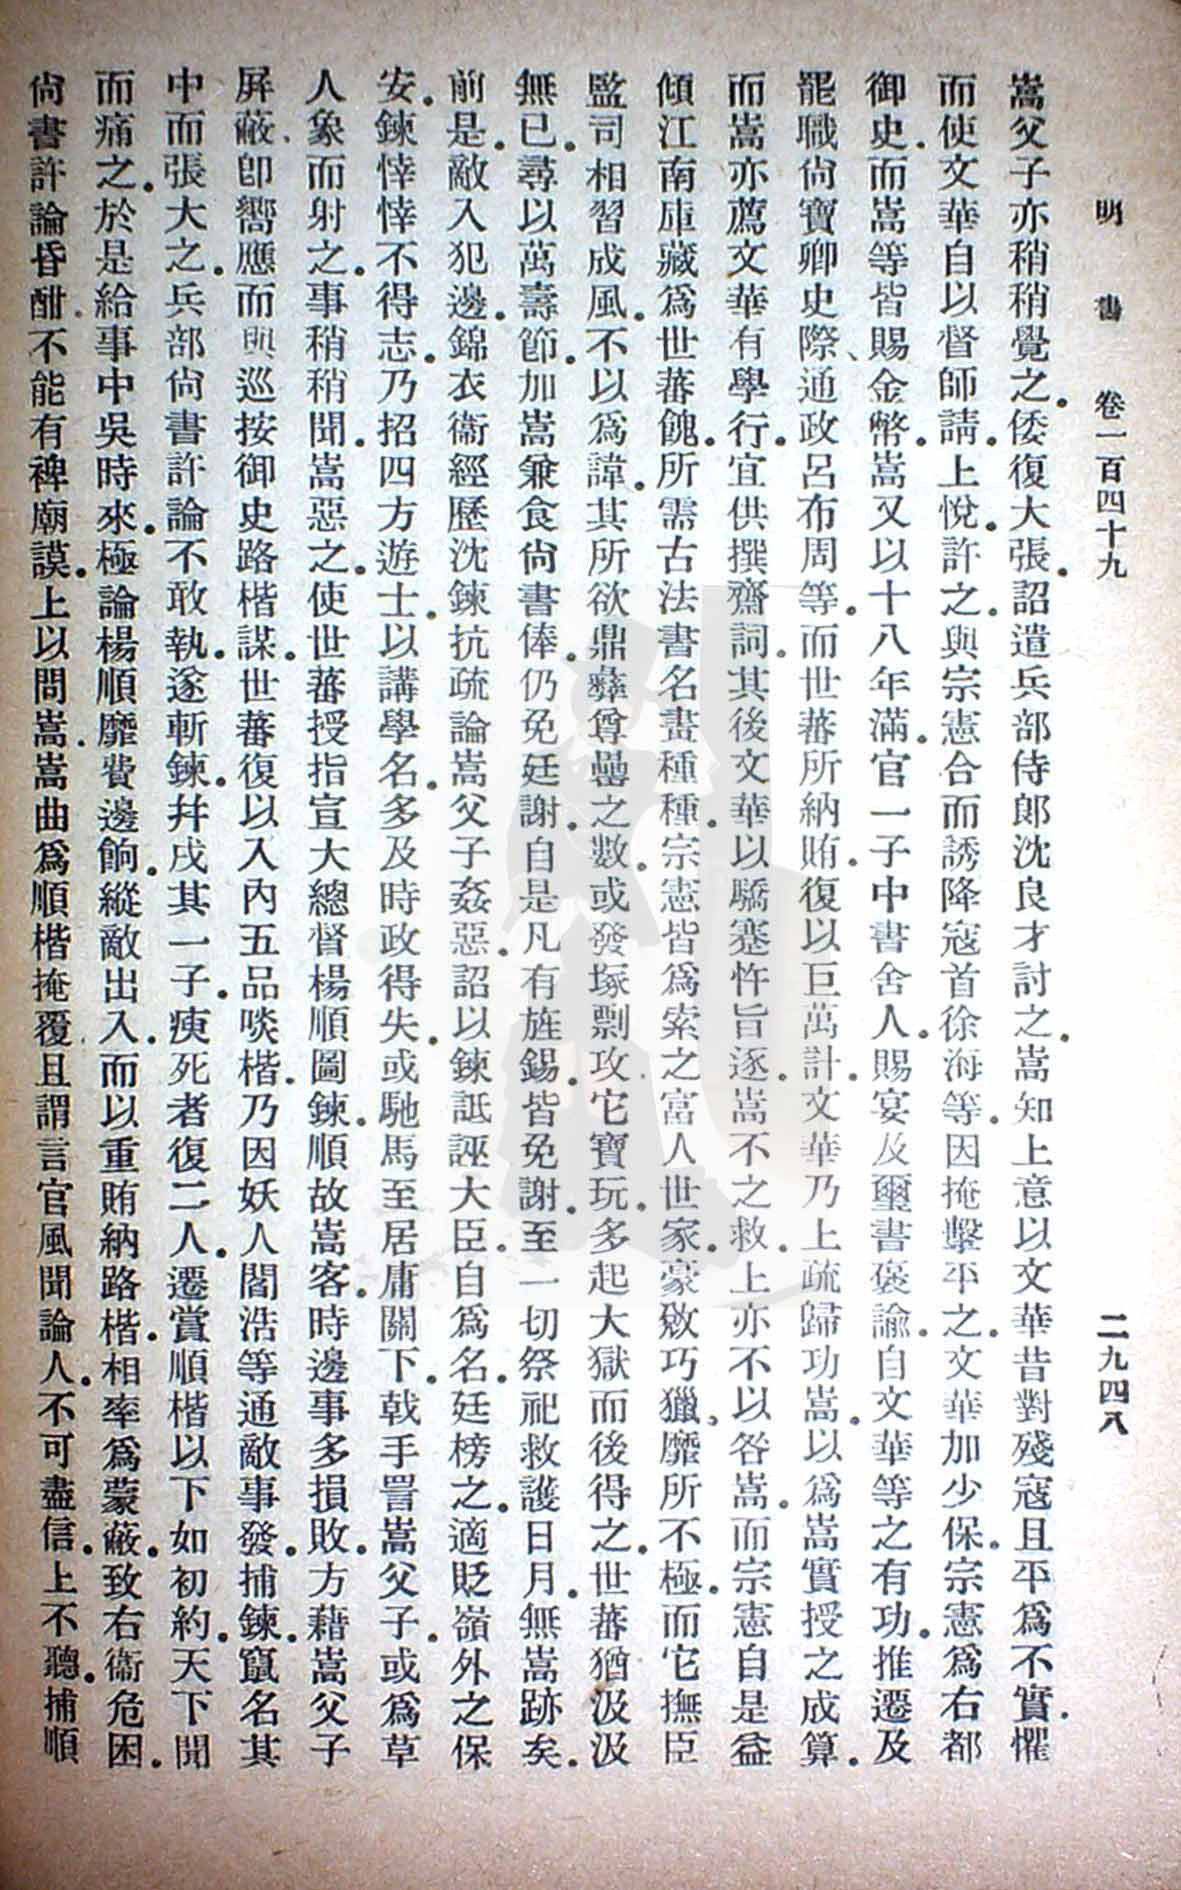 明書 卷一百四十九 二九四八
嵩父子亦稍稍覺之．倭復大張．詔遣兵部侍郎沈良才討之．嵩知上意以文華昔對殘寇且平爲不實．懼
而使文華自以督師請．上悅．許之．與宗憲合而誘降寇首徐海等．因掩擊平之．文華加少保．宗憲爲右都
御史．而嵩等皆賜金幣．嵩又以十八年滿．官一子中書舍人．賜宴及璽書褒諭．自文華等之有功．推遷及
罷職尙寶卿史際、通政呂布周等．而世蕃所納賄．復以巨萬計．文華乃上疏歸功嵩．以爲嵩實授之成算．
而嵩亦薦文華有學行．宜供撰齋詞．其後文華以驕蹇忤旨逐．嵩不之救．上亦不以咎嵩．而宗憲自是益
傾江南庫藏爲世蕃餽．所需古法書名畫種種．宗憲皆爲索之富人世家．豪斂巧獵．靡所不極．而它撫臣
監司相習成風．不以爲諱．其所欲鼎彝尊罍之數．或發塚剽攻．它寶玩．多起大獄而後得之．世蕃猶汲汲
無已．尋以萬壽節．加嵩兼食尙書俸．仍免廷謝．自是凡有旌錫．皆免謝．至一切祭祀救護日月．無嵩跡矣．
前是．敵入犯邊．錦衣衞經歷沈鍊抗疏論嵩父子姦惡．詔以鍊詆誣大臣．自爲名．廷榜之．適貶嶺外之保
安．鍊悻悻不得志．乃招四方遊士．以講學名．多及時政得失．或馳馬至居庸關下．戟手詈嵩父子．或爲草
人象而射之．事稍稍聞．嵩惡之．使世蕃授指宣大總督楊順圖鍊．順故嵩客．時邊事多損敗．方藉嵩父子
屛蔽．卽嚮應而與巡按御史路楷謀．世蕃復以入內五品啖楷．乃因妖人閻浩等通敵事發．捕鍊．竄名其
中而張大之．兵部尙書許論不敢執．遂斬鍊．幷戍其一子．瘐死者復二人．遷賞順楷以下如初約．天下聞
而痛之．於是給事中吳時來．極論楊順靡費邊餉．縱敵出入．而以重賄納路楷．相率爲蒙蔽．致右衞危困．
尙書許論昏酣．不能有裨廟謨．上以問嵩．嵩曲爲順楷掩覆．且謂言官風聞論人．不可盡信．上不聽．捕順